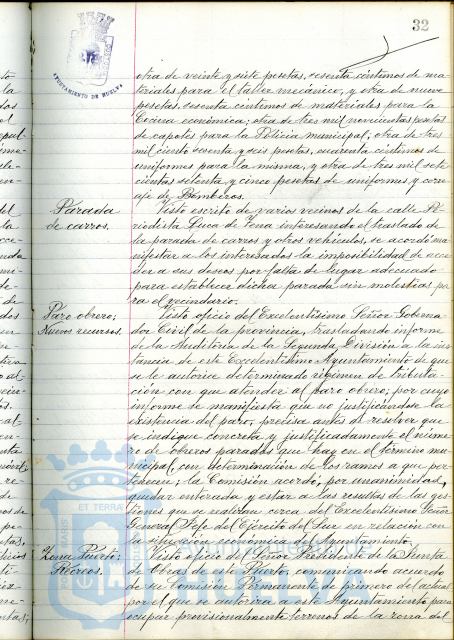 32
AYUNTAMIENTO DE HUELVA
otra de veinte y siete pesetas, sesenta céntimos de ma-
teriales para el taller mecánico, y otra de nueve
pesetas, sesenta céntimos de materiales para la
Cocina económica; otra de tres mil novecientas pesetas
de capotes para la Policía municipal, otra de tres
mil ciento sesenta y seis pesetas, cuarenta céntimos de
uniformes para la misma, y otra de tres mil sete
cientas setenta y cinco pesetas de uniformes y corre
aje de Bomberos.
Parada
de carros.
Visto escrito de varios vecinos de la calle Pe-
riodista Luca de Tena interesando el traslado de
la parada de carros y otros vehículos, se acordó ma-
nifestar a los interesados la imposibilidad de acce-
der a sus deseos por falta de lugar adecuado
para establecer dicha parada sin molestias pa
ra el vecindario.
Paro obrero;
Nuevos recursos.
Visto oficio del Excelentísimo Señor Goberna-
dor Civil de la provincia, trasladando informe
de la Auditoría de la Segunda División a la ins-
tancia de este Excelentísimo Ayuntamiento de que
se le autorice determinado régimen de tributa-
ción con que atender al paro obrero, por cuyo
informe se manifiesta que no justificándose la
existencia del paro, precisa antes de resolver que
se indique concreta y justificadamente el núme-
ro de obreros parados que hay en el término mu-
nicipal, con determinación de los ramos a que per-
tenecen; la Comisión acordó, por unanimidad,
quedar enterada y estar a las resultas de las ges-
tiones que se realizan cerca del Excelentísimo Señor
General Jefe del Ejército del Sur en relación con
la situación económica del Ayuntamiento.
Zona Puerto:
Recreos.
Visto oficio del Señor Presidente de la Junta
de Obras de este Puerto, comunicando acuerdo
de su Comisión Permanente de primero del actual
por el que se autoriza a este Ayuntamiento para
ocupar provisionalmente terrenos de la zona del